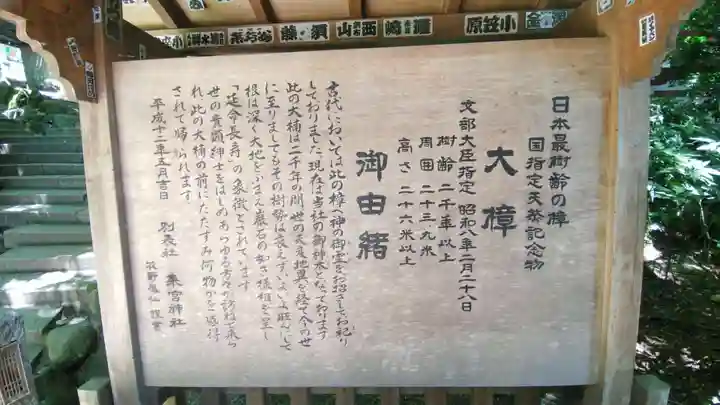 日本最樹齢の樟
国指定天然記念物
大樟
文部大臣指定 昭和八年二月二十八日
樹齢 二千年以上
周囲 二十三、九米
高さ 二十六米以上
御由緒
古代においては此の樟へ神の御霊をお招きしてお祀り
しておりました 現在は当社の御神木となっております
此の大楠は二千年の間 世の天変地異を経て今の世
に至りましてもその樹勢は衰えず、いよいよ旺んにして
根は深く大地をふまえ巌石の如き様相を呈し
「延命長寿」の象徴とされています
世の貴顕紳士をはじめあらゆる方々が訪ねて来ら
れ、此の大楠の前にたたずみ何物かを感得
されて帰られます
平成十二年五月吉日
別表社 来宮神社
小笠原
西山
須藤